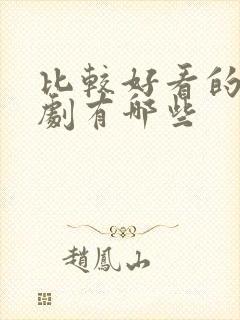 比較好看的
劇有哪些
趙鳳山